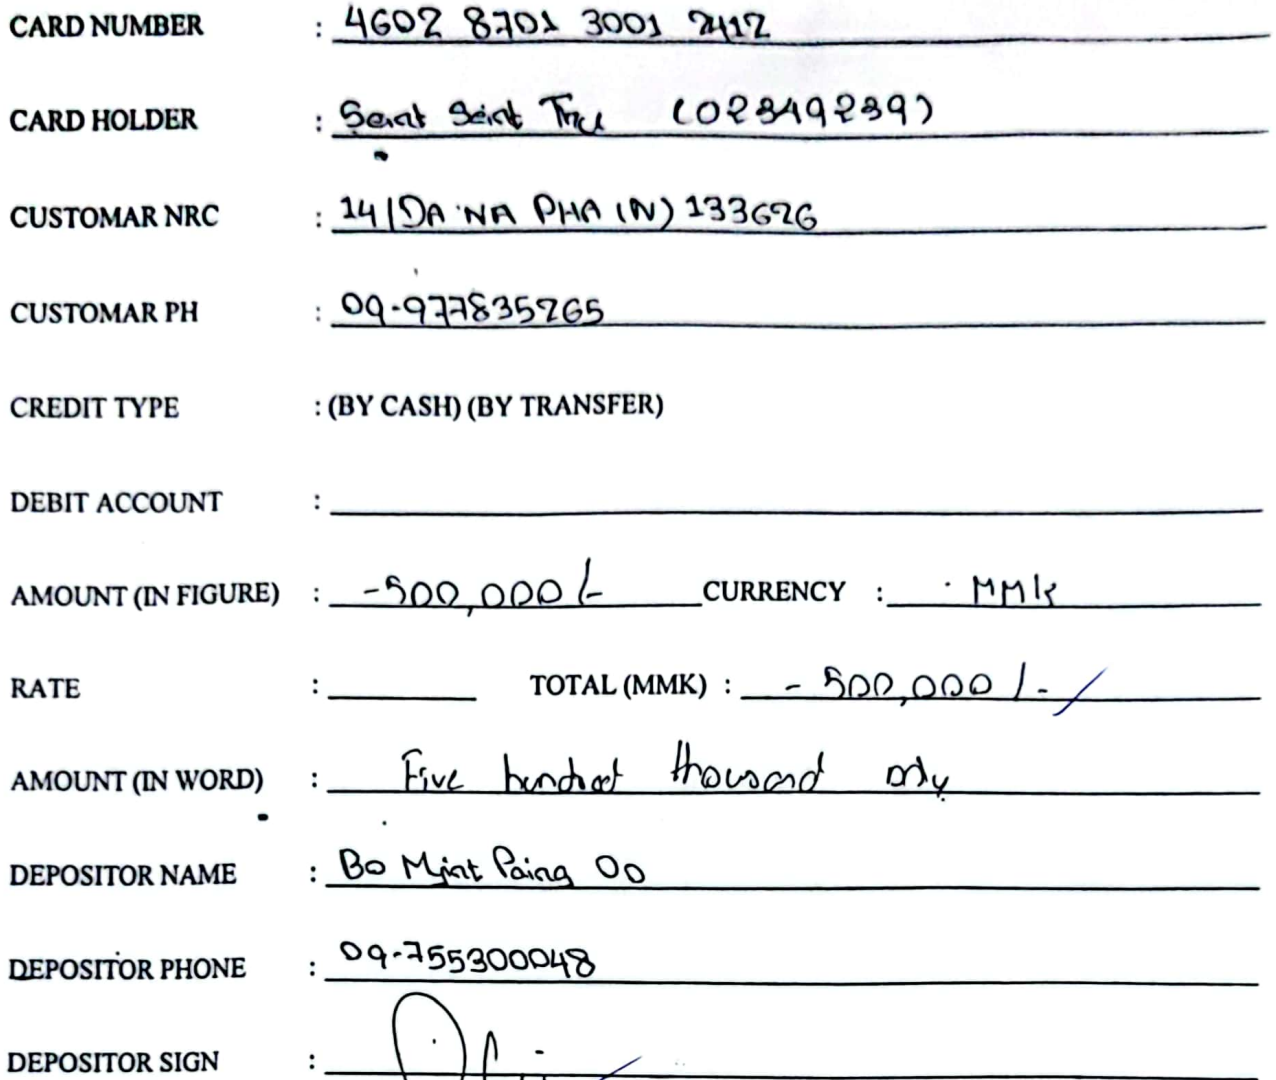 CARD NUMBER : 4602 8701 3001 2412
CARD HOLDER : Seint Seint Thu (02349239)
CUSTOMAR NRC : 14/DA NA PHA (N) 133626
CUSTOMAR PH : 09-977835265
CREDIT TYPE : (BY CASH) (BY TRANSFER)
DEBIT ACCOUNT :
AMOUNT (IN FIGURE) : -500,000/- CURRENCY : MMK
RATE : TOTAL (MMK) : - 500,000 /-
AMOUNT (IN WORD) : Five hundred thousand only
DEPOSITOR NAME : Bo Myint Paing Oo
DEPOSITOR PHONE : 09-755300048
DEPOSITOR SIGN :